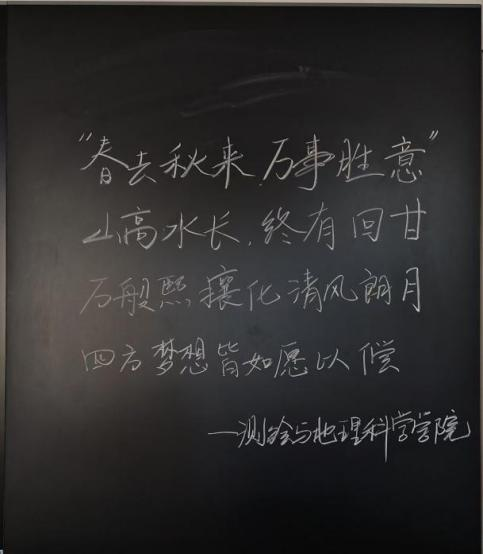 “春去秋来,万事胜意”
山高水长,终有回甘
万般熙攘化清风朗月
四方梦想皆如愿以偿
—测绘与地理科学学院